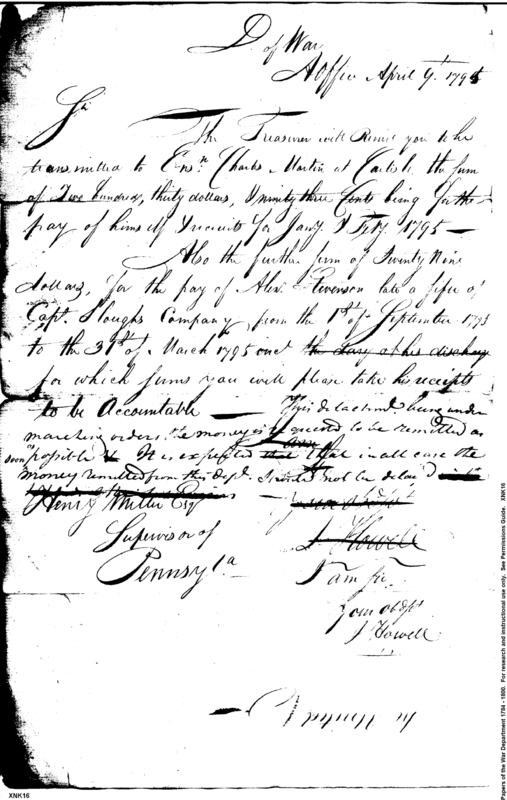 D of War
A Office April 9th 1795
Sir
The Treasurer will Remit you to be
transmitted to Ensn Charles Martin at Carlisle the sum
of Two hundred, thirty dollars, & ninety three Cents being for the
pay of himself & recruits for Jany & Feby 1795 —
Also the further sum of Twenty Nine
dollars, for the pay of Alexr Stevenson late a fifer of
Capt. Sloughs Company, from the 1st of September 1793
to the 31st of March 1795 and the day of his discharge
for which sums you will please take his receipts
to be Accountable — This detachmt being under
marching orders, the money is to be remitted as
soon as possible It is expected that in all case the
money remitted from this dept. should not be delay'd
Henry Miller Esqr
your obdt
Supervisor of
J Howell
Pennsyla
I am Sir
Your obdt
J Howell
H Miller
Papers of the War Department 1784 - 1800. For research and instructional use only. See Permissions Guide. XNK16
XNK16